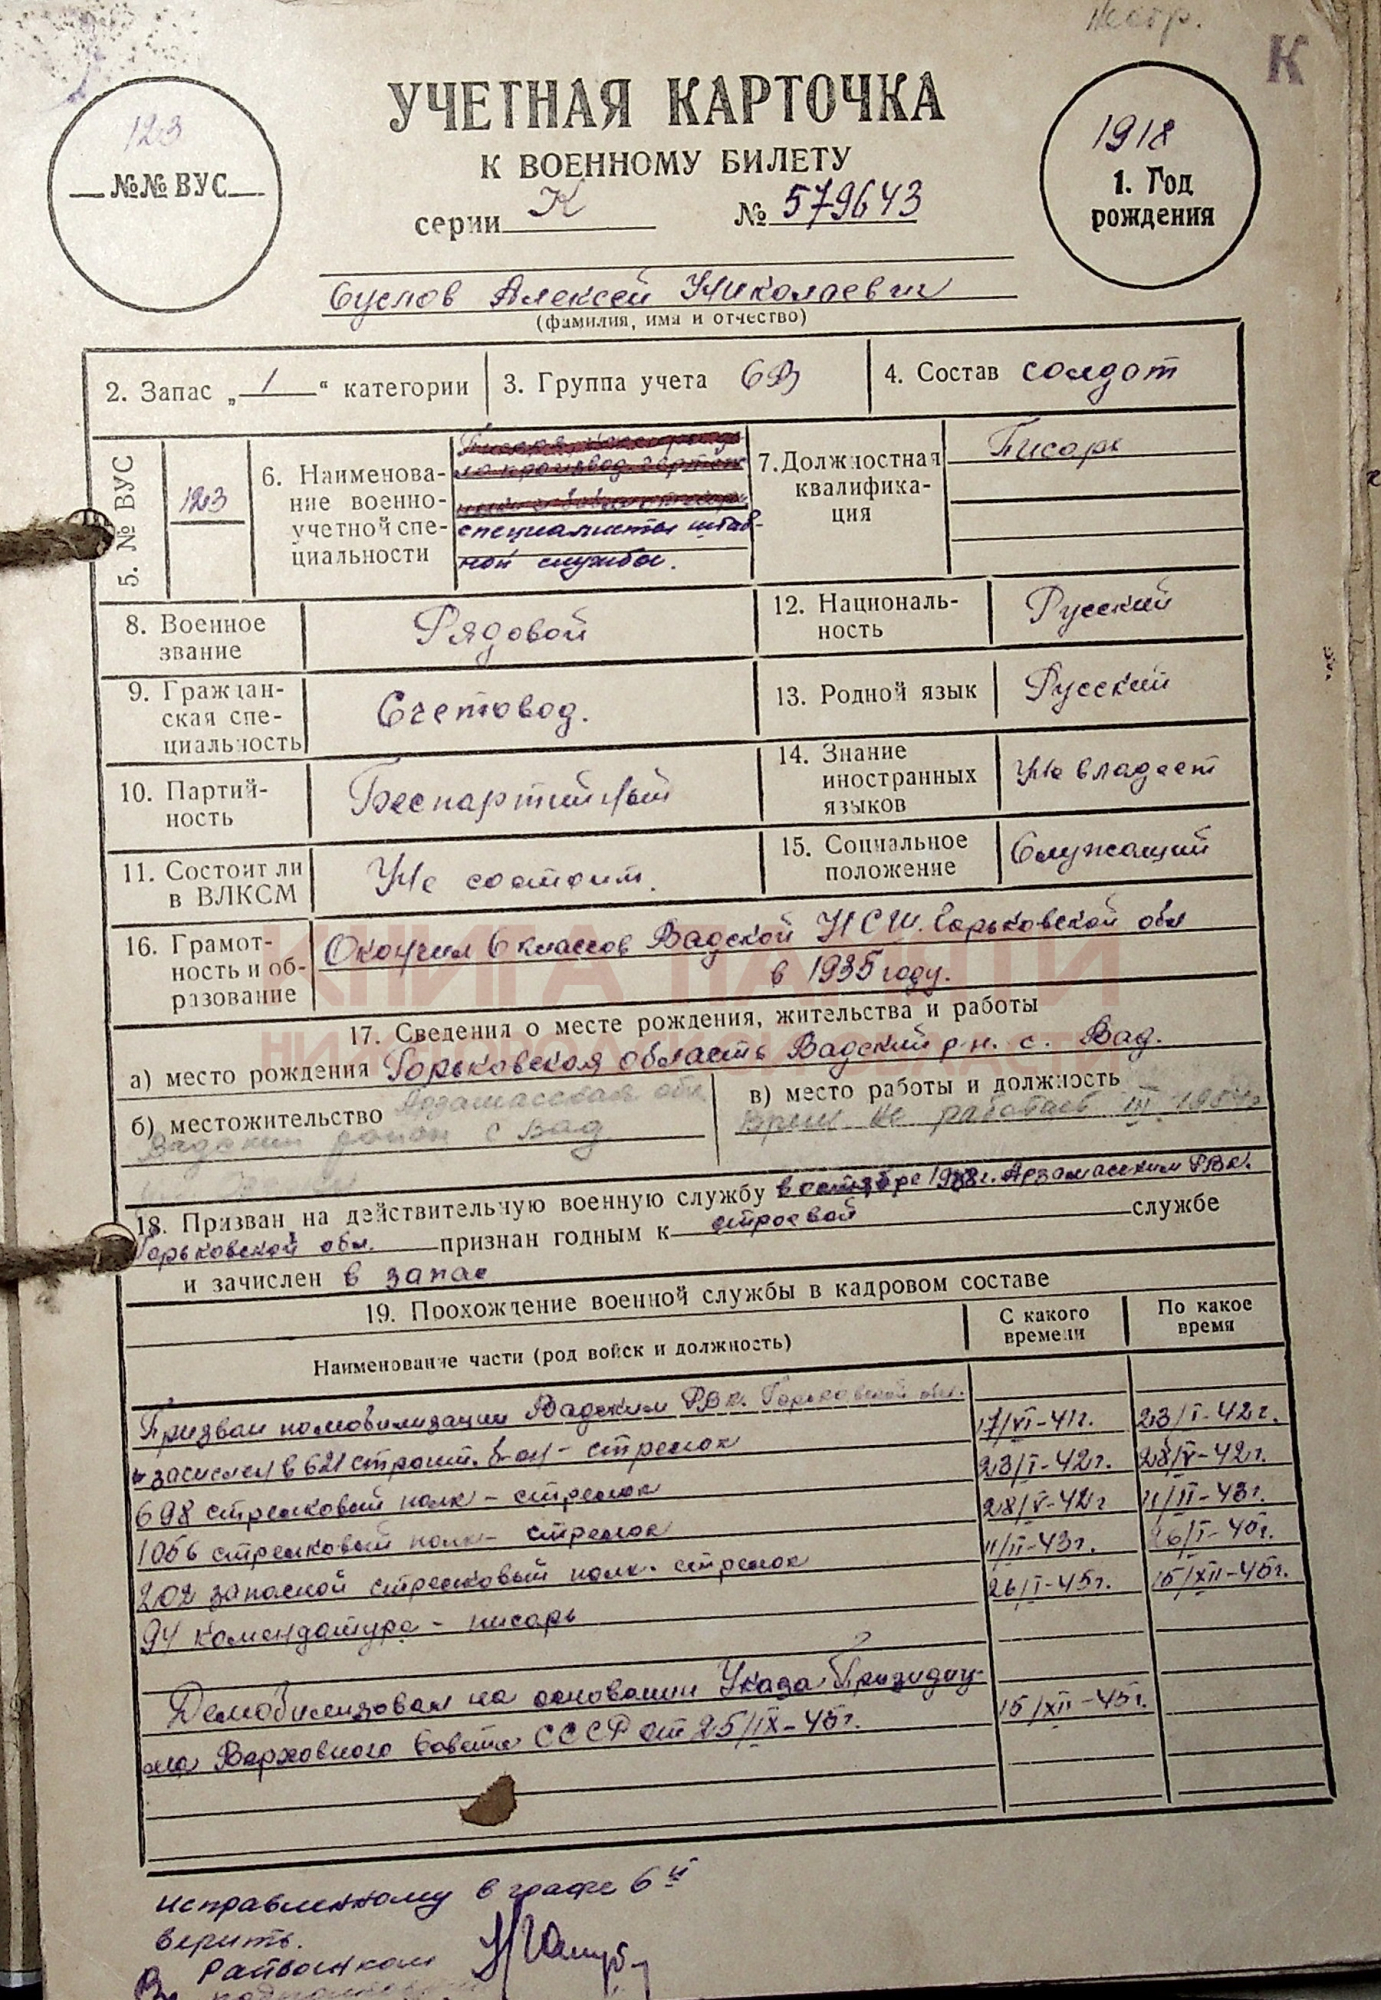 Несбр.
К
123
№№ ВУС
УЧЕТНАЯ КАРТОЧКА
К ВОЕННОМУ БИЛЕТУ
серии К № 579643
1918
1. Год
рождения
Суслов Алексей Николаевич
(фамилия, имя и отчество)
2. Запас „ 1 “ категории
3. Группа учета СВ
4. Состав солдат
5. № ВУС
123
6. Наименова-
ние военно-
учетной спе-
циальности
специалисты штаб-
ной службы.
7. Должностная
квалифика-
ция
Писарь
8. Военное
звание
Рядовой
12. Националь-
ность
Русский
9. Граждан-
ская спе-
циальность
Счетовод.
13. Родной язык
Русский
10. Партий-
ность
Беспартийный
14. Знание
иностранных
языков
Не владеет
11. Состоит ли
в ВЛКСМ
Не состоит.
15. Социальное
положение
Служащий
16. Грамот-
ность и об-
разование
Окончил 6 классов Вадской НСШ. Горьковской обл
в 1935 году.
КНИГА ПАМЯТИ
НИЖЕГОРОДСКОЙ ОБЛАСТИ
17. Сведения о месте рождения, жительства и работы
а) место рождения Горьковская область Вадский р-н. с. Вад.
б) местожительство Арзамасская обл.
Вадский район с Вад
в) место работы и должность
Врем. не работает III 1954г
18. Призван на действительную военную службу в октябре 1938г. Арзамасским РВК.
Горьковской обл. признан годным к строевой службе
и зачислен в запас
19. Прохождение военной службы в кадровом составе
Наименование части (род войск и должность)
С какого
времени
По какое
время
Призван по мобилизации Вадским РВК. Горьковской обл.
17/VI-41г. 23/I-42г.
зачислен в 621 строит. б-он - стрелок
23/I-42г. 28/V-42г.
698 стрелковый полк - стрелок
28/V-42г 11/II-43г.
1056 стрелковый полк - стрелок
11/II-43г. 26/I-45г.
202 запасной стрелковый полк - стрелок
26/I-45г. 15/XII-45г.
94 комендатура - писарь
Демобилизован на основании Указа Призидиу-
15/XII-45г.
ма Верховного Совета СССР от 25/IX-45г.
исправленному в графе 6й
верить.
Райвоенком